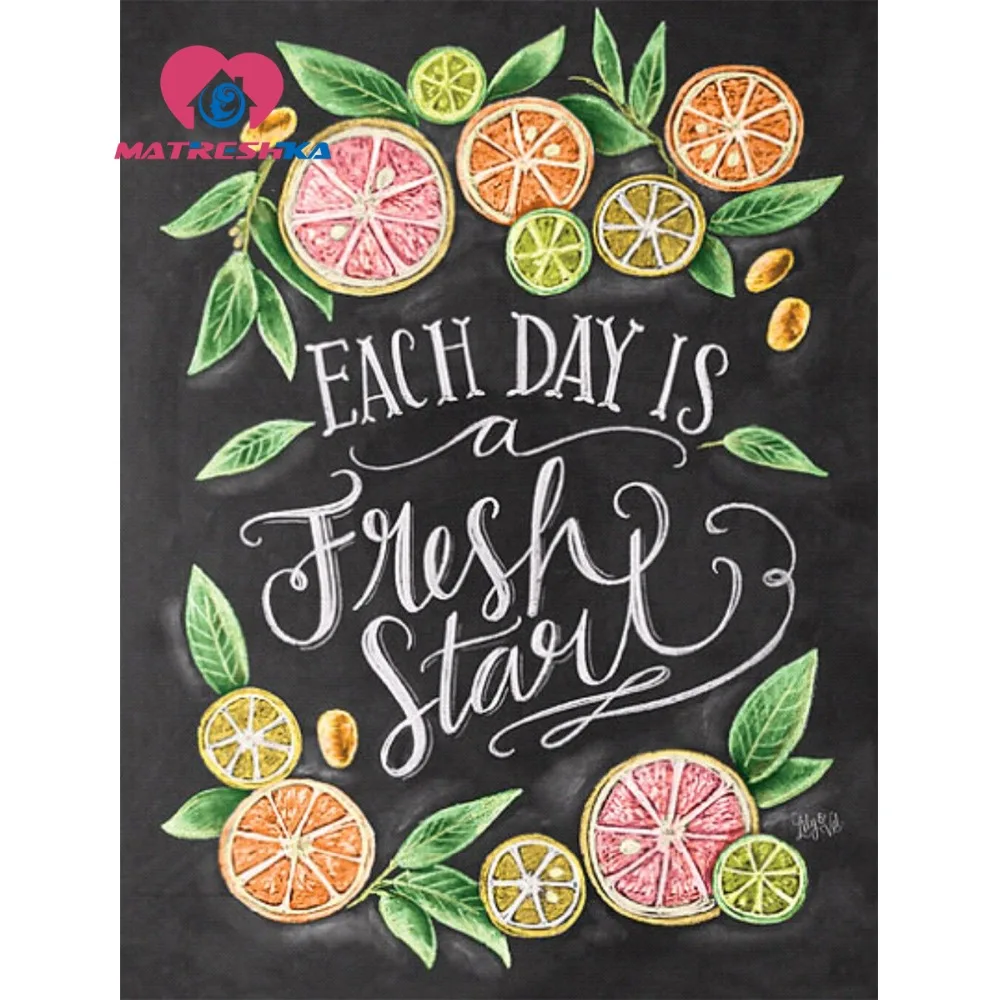 MATRESHKA
EACH DAY IS
a
Fresh
Start
Lily & Val